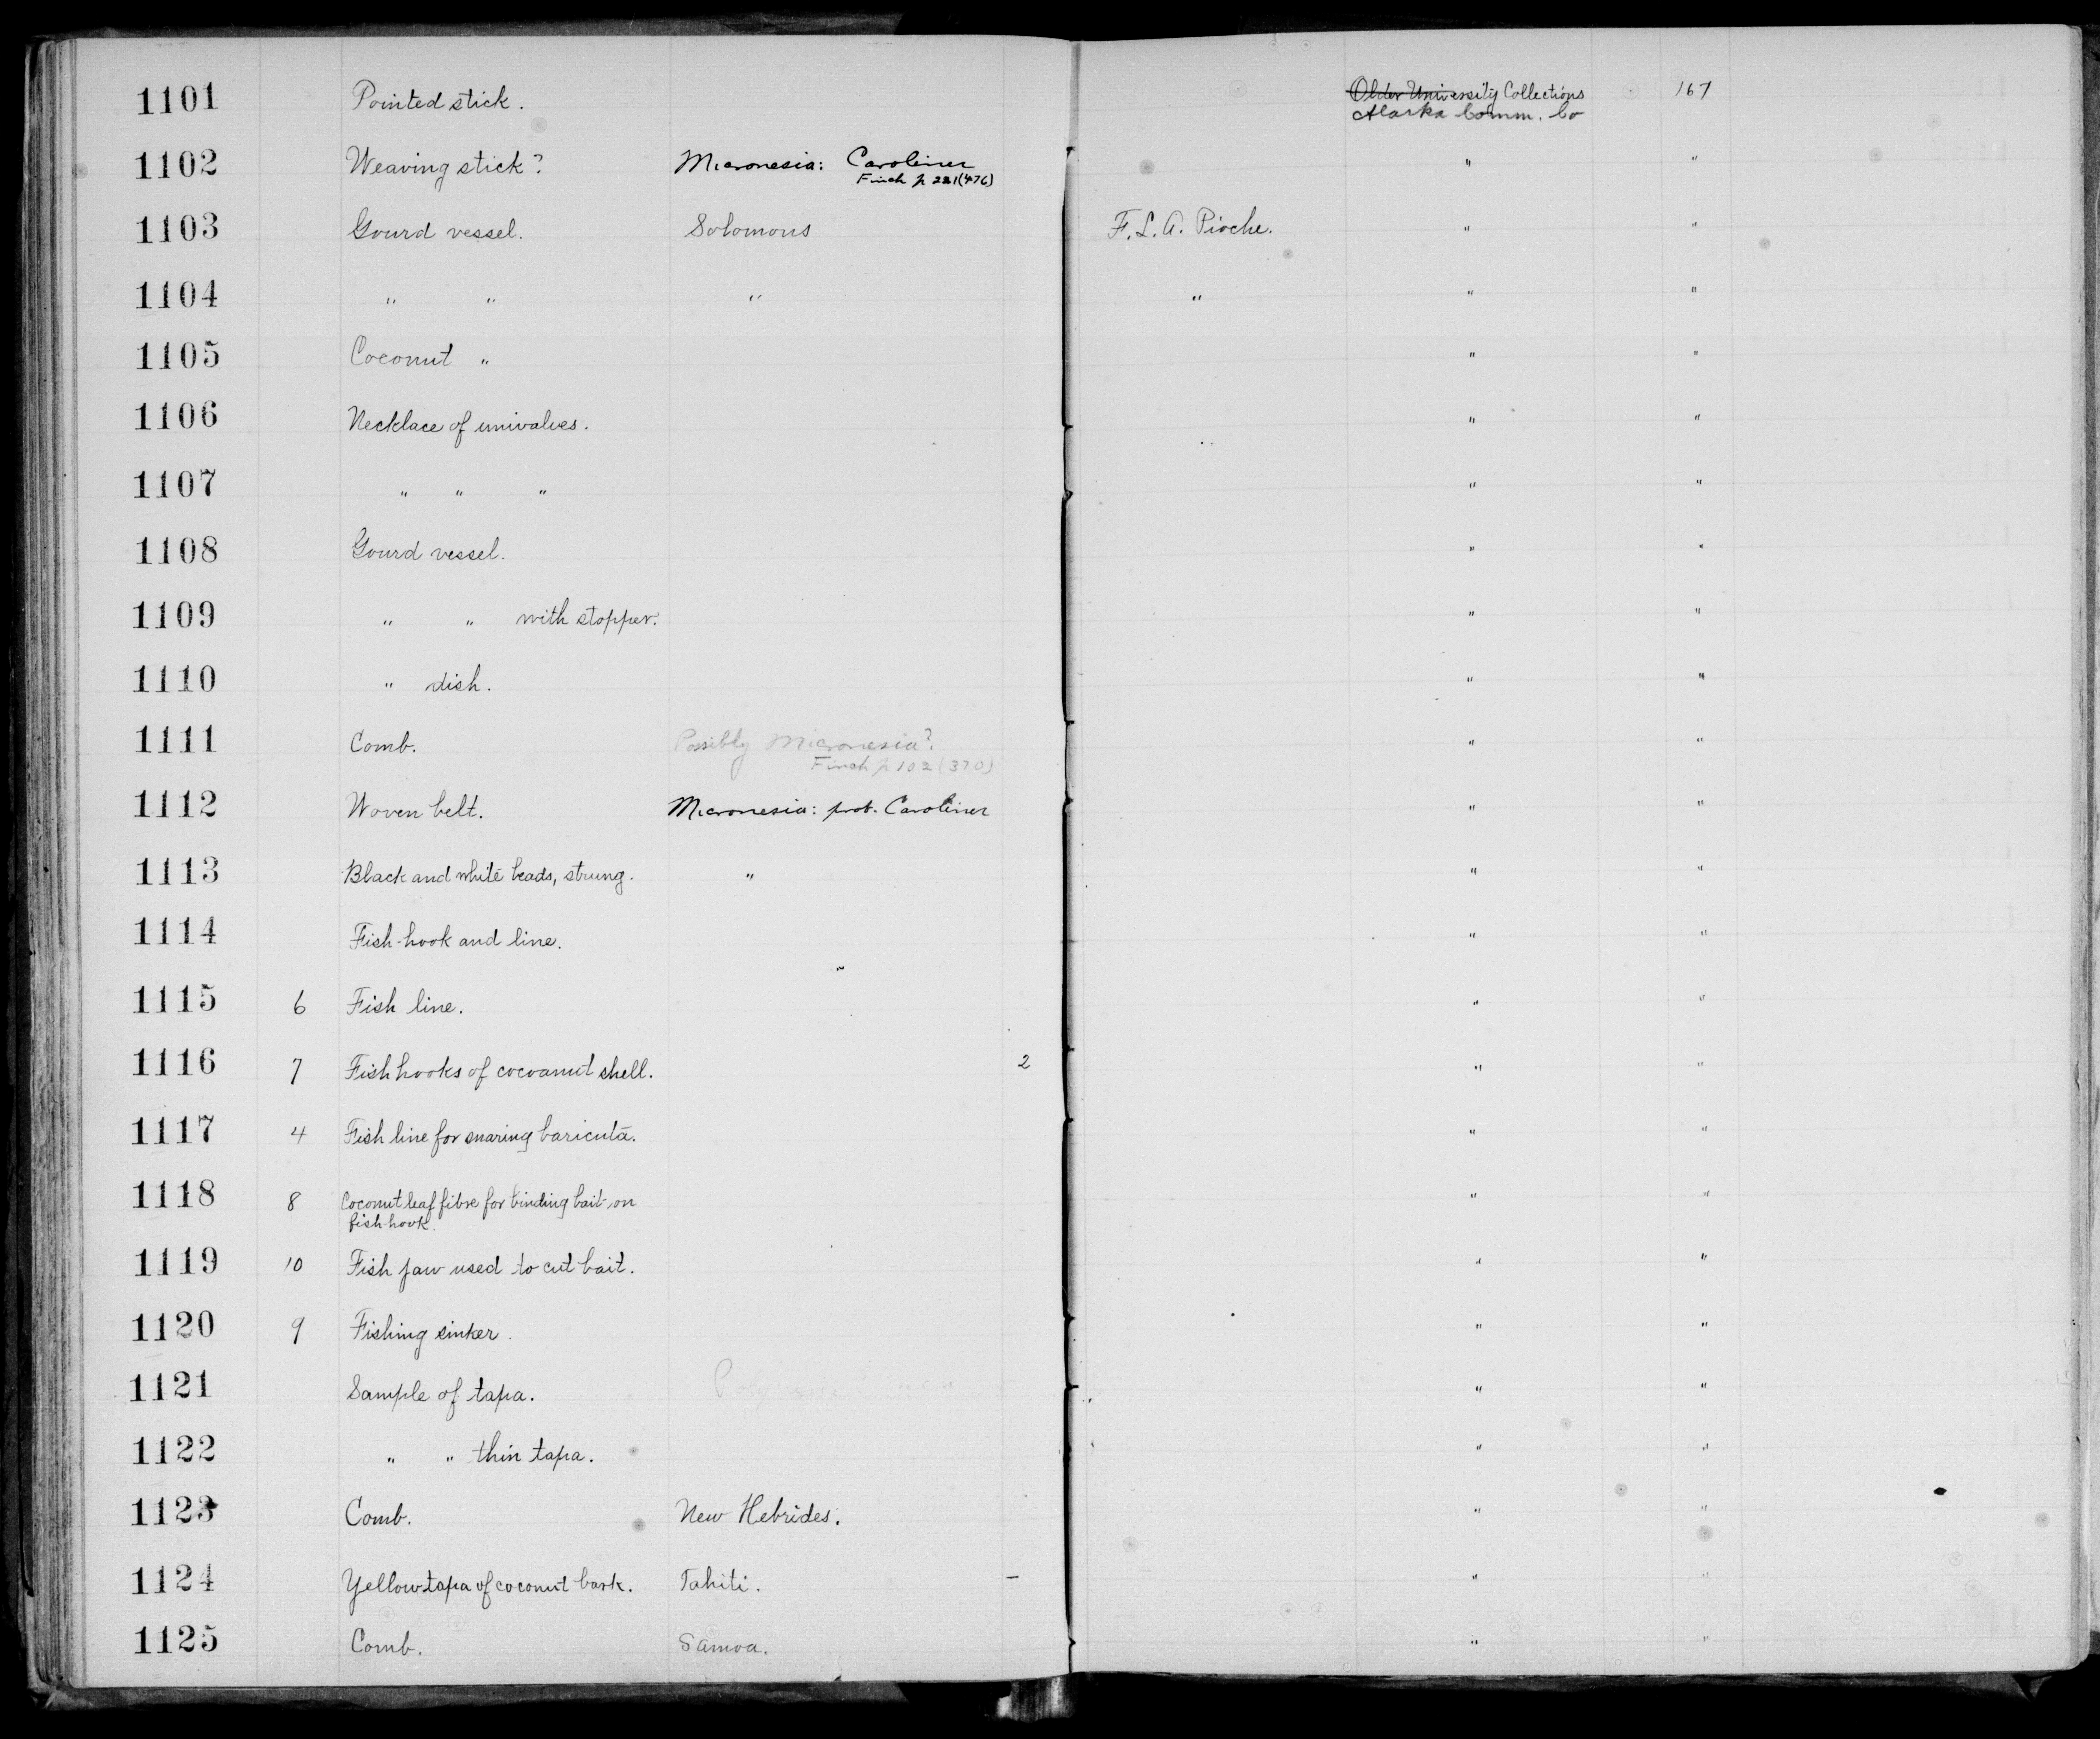 1101 Pointed stick. Older University Collections 167
Alaska Comm. Co
1102 Weaving stick? Micronesia: Carolines " "
Finch p 221(476)
1103 Gourd vessel. Solomons F. L. A. Pioche. " "
1104 " " " " " "
1105 Coconut " " "
1106 Necklace of univalves. " "
1107 " " " " "
1108 Gourd vessel. " "
1109 " " with stopper. " "
1110 " dish. " "
1111 Comb. Possibly Micronesia? " "
Finch p 102 (370)
1112 Woven belt. Micronesia: prob. Carolines " "
1113 Black and white beads, strung. " " "
1114 Fish-hook and line. " "
1115 6 Fish line. " "
1116 7 Fish hooks of cocoanut shell. 2 " "
1117 4 Fish line for snaring baricuta. " "
1118 8 Coconut leaf fibre for binding bait on " "
fish-hook.
1119 10 Fish jaw used to cut bait. " "
1120 9 Fishing sinker. " "
1121 Sample of tapa. " "
1122 " " thin tapa. " "
1123 Comb. New Hebrides. " "
1124 Yellow tapa of coconut bark. Tahiti. – " "
1125 Comb. Samoa. " "